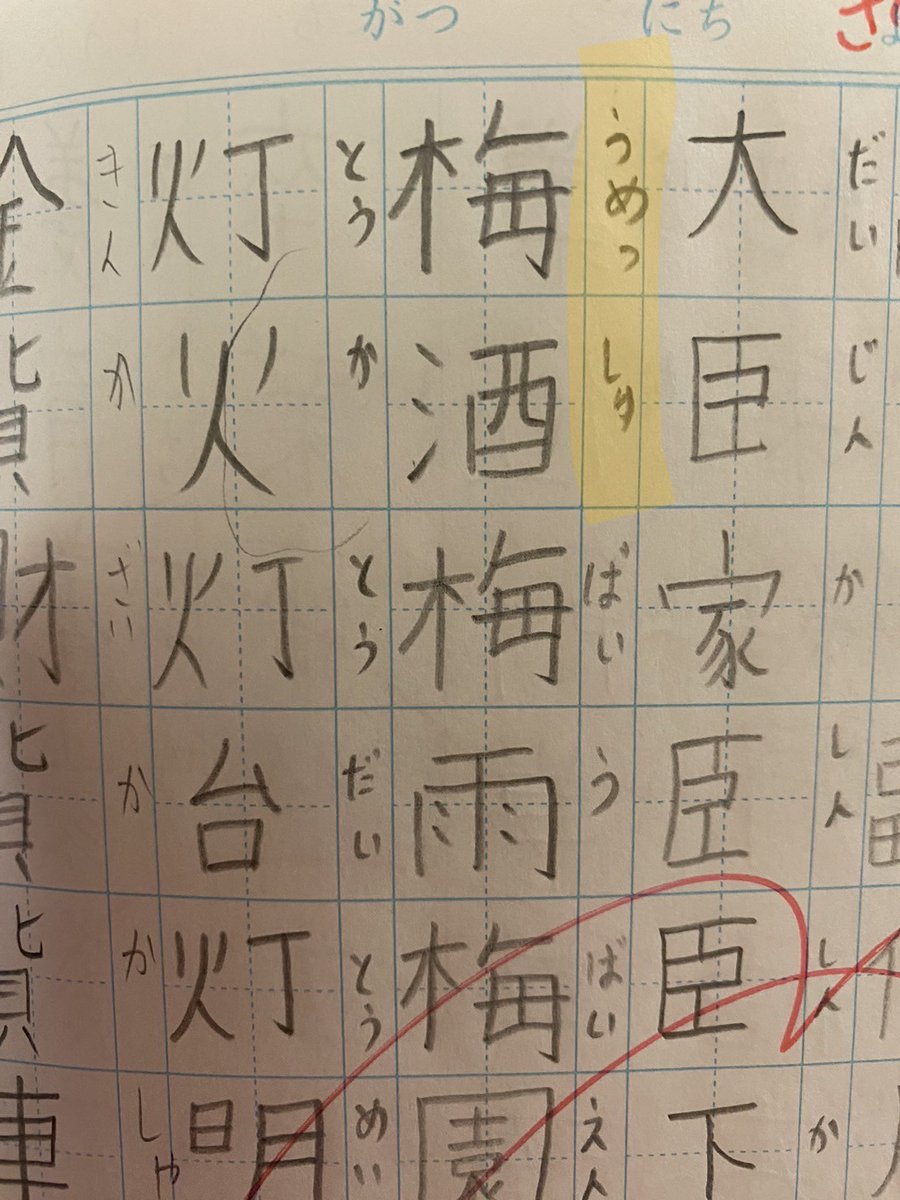 がつ にち
だいじん かしん しんか
大臣家臣臣下
うめっしゅ ばいう ばいえん
梅酒梅雨梅園
とうか とうだい とうめい
灯火灯台灯明
きんか ざいか かしゃ
金貨財貨貨車